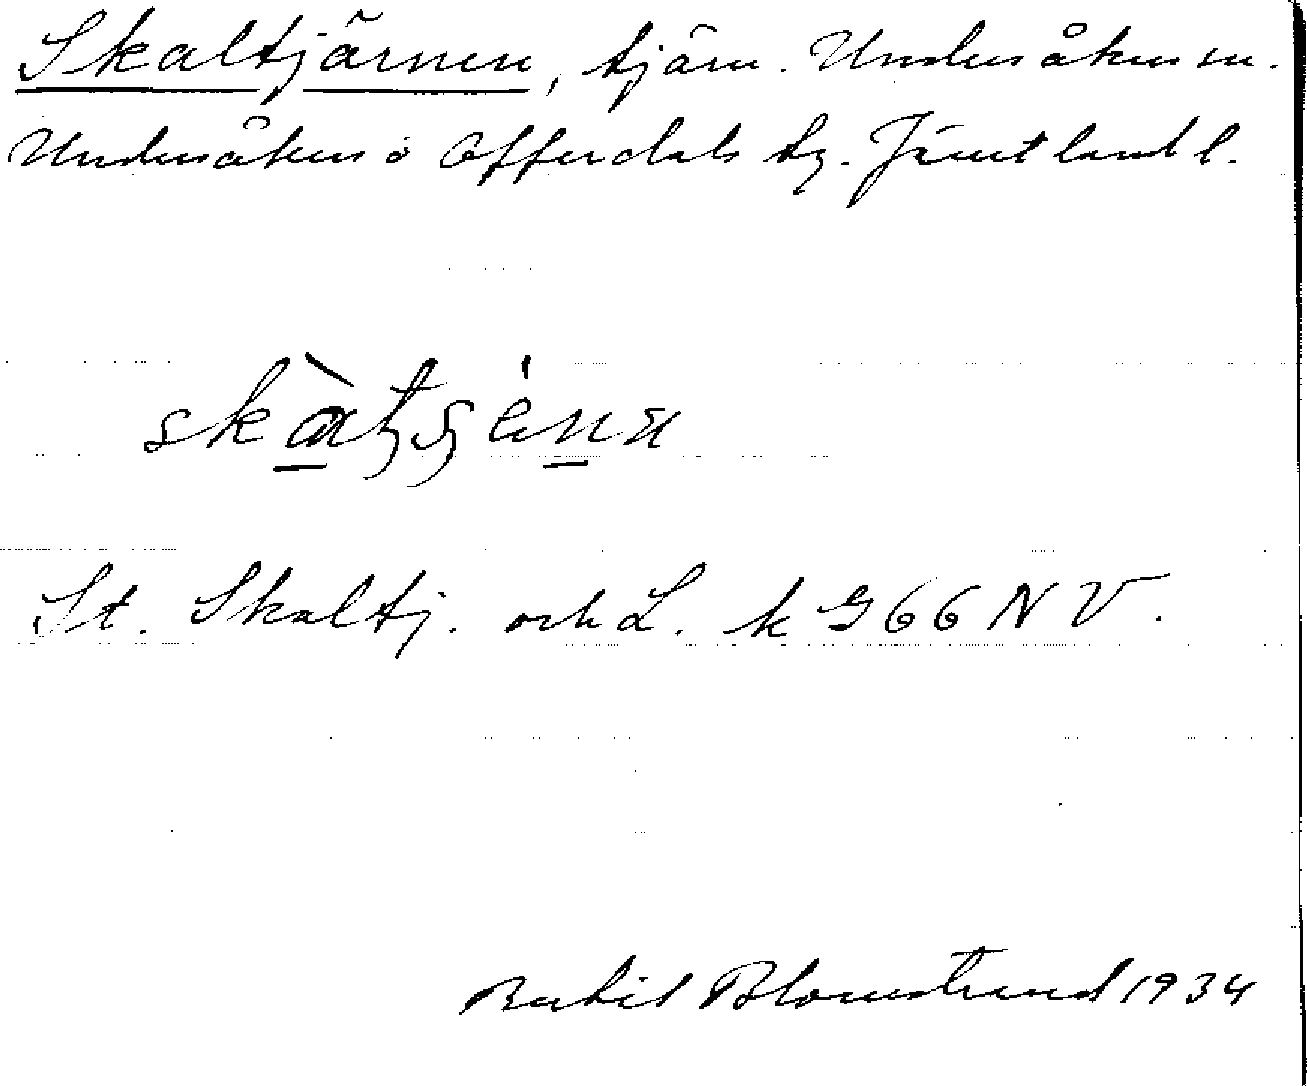 Skaltjärnen, tjärn. Undersåkers sn.
Undersåkers o Offerdals tg. Jämtland l.
St. Skaltj. och L. k G66 NV.
Bertil Blomstrand 1934